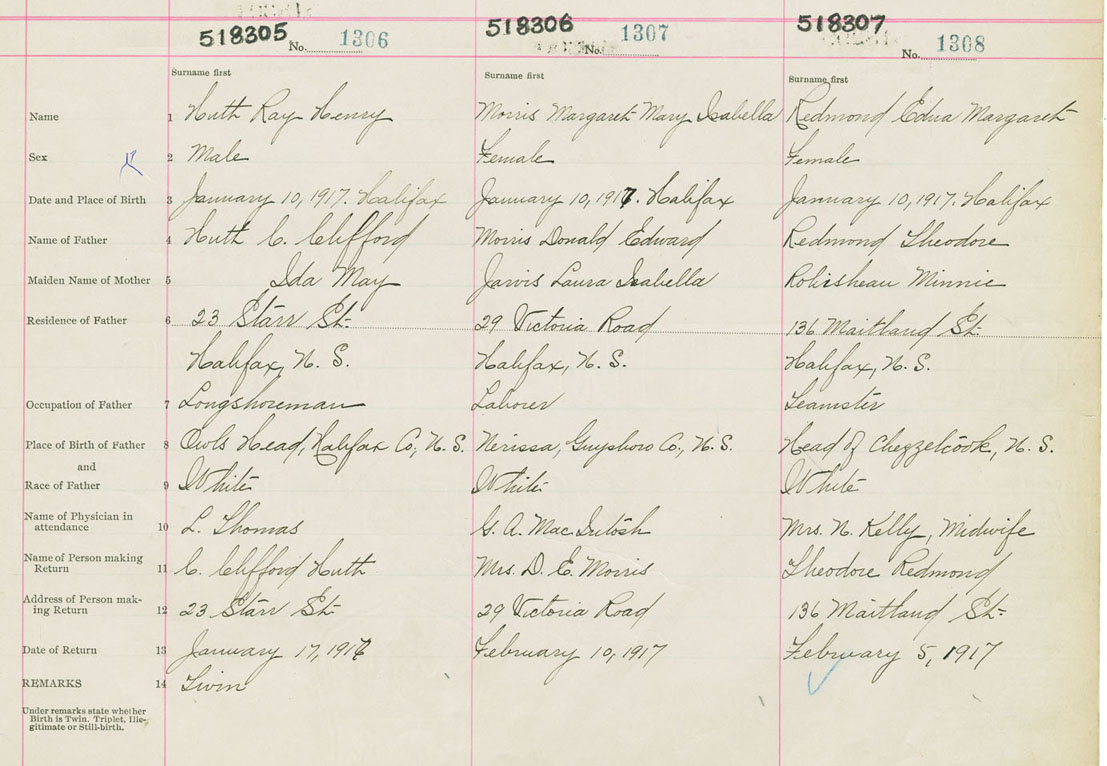 518305 No. 1306 518306 No. 1307 518307 No. 1308
Surname first Surname first Surname first
Name 1 Huth Ray Henry Morris Margaret Mary Isabella Redmond Edna Margaret
Sex 2 Male Female Female
Date and Place of Birth 3 January 10, 1917. Halifax January 10, 1917. Halifax January 10, 1917. Halifax
Name of Father 4 Huth C. Clifford Morris Donald Edward Redmond Theodore
Maiden Name of Mother 5 Ida May Jarvis Laura Isabella Robisheau Minnie
Residence of Father 6 23 Starr St. 29 Victoria Road 136 Maitland St.
Halifax, N. S. Halifax, N. S. Halifax, N. S.
Occupation of Father 7 Longshoreman Laborer Teamster
Place of Birth of Father 8 Owls Head, Halifax Co., N. S. Nerissa, Guysboro Co., N. S. Head of Chezzelcook, N. S.
and
Race of Father 9 White White White
Name of Physician in
attendance 10 L. Thomas G. A. MacIntosh Mrs. N. Kelly, Midwife
Name of Person making
Return 11 C. Clifford Huth Mrs. D. E. Morris Theodore Redmond
Address of Person mak-
ing Return 12 23 Starr St. 29 Victoria Road 136 Maitland St.
Date of Return 13 January 17, 1917 February 10, 1917 February 5, 1917
REMARKS 14 Twin
Under remarks state whether
Birth is Twin, Triplet, Ille-
gitimate or Still-birth.